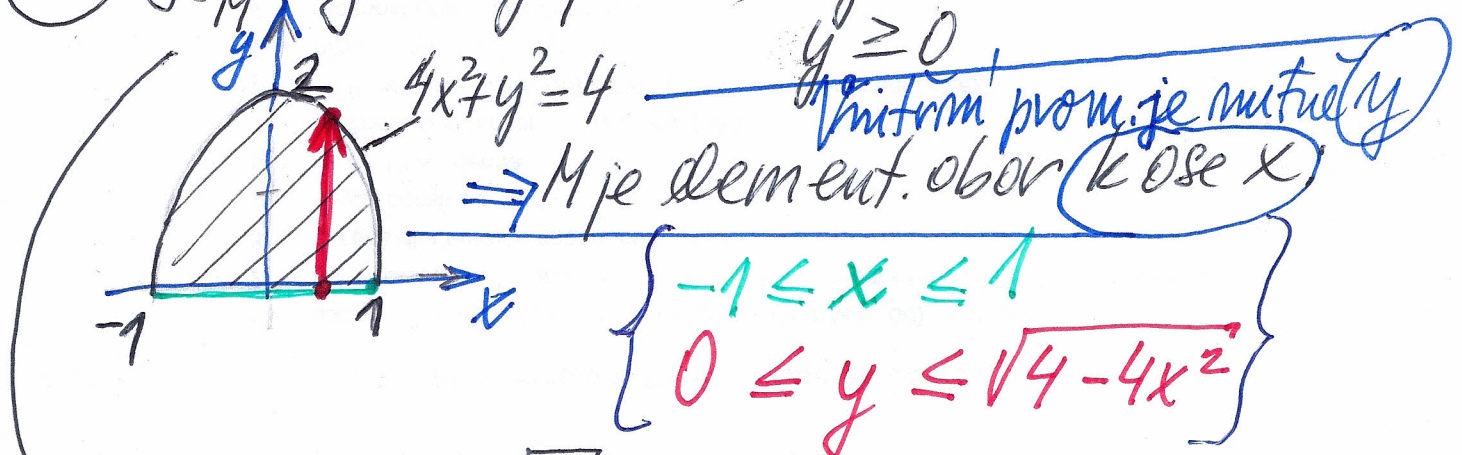 y ≥ 0
y
2
4x²+y²=4
Vnitřní prom. je nutně y
⇒ M je element. obor k ose x:
-1 ≤ x ≤ 1
x
-1
1
0 ≤ y ≤ √4-4x²